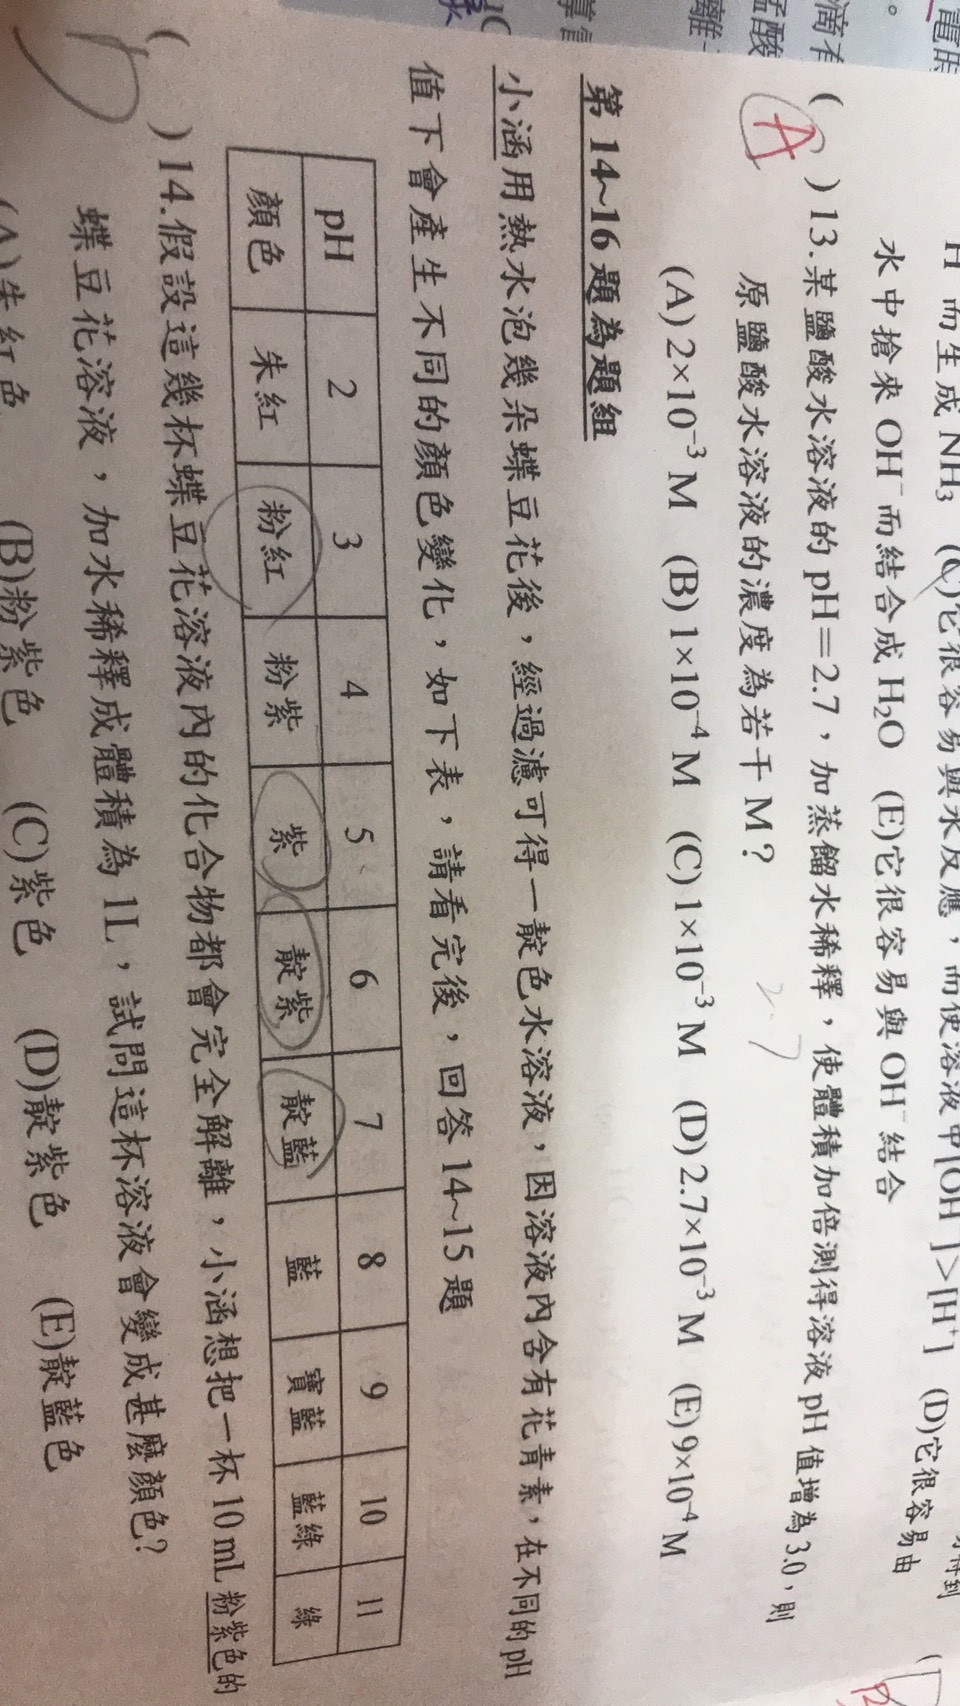 電
滴有
錳酸
離子
H 而生成 NH₃ (C)它很容易與水反應,而使溶液中[OH⁻]>[H⁺] (D)它很容易由
水中搶來 OH⁻而結合成 H₂O (E)它很容易與 OH⁻結合
( A )13.某鹽酸水溶液的 pH=2.7,加蒸餾水稀釋,使體積加倍測得溶液 pH 值增為 3.0,則
原鹽酸水溶液的濃度為若干 M?
2.7
(A)2×10⁻³ M (B)1×10⁻⁴ M (C)1×10⁻³ M (D)2.7×10⁻³ M (E)9×10⁻⁴ M
第 14~16 題為題組
小涵用熱水泡幾朵蝶豆花後,經過濾可得一靛色水溶液,因溶液內含有花青素,在不同的 pH
值下會產生不同的顏色變化,如下表,請看完後,回答 14~15 題
pH 2 3 4 5 6 7 8 9 10 11
顏色 朱紅 粉紅 粉紫 紫 靛紫 靛藍 藍 寶藍 藍綠 綠
( )14.假設這幾杯蝶豆花溶液內的化合物都會完全解離,小涵想把一杯 10 mL 粉紫色的
蝶豆花溶液,加水稀釋成體積為 1L,試問這杯溶液會變成甚麼顏色?
(A)朱紅色 (B)粉紫色 (C)紫色 (D)靛紫色 (E)靛藍色